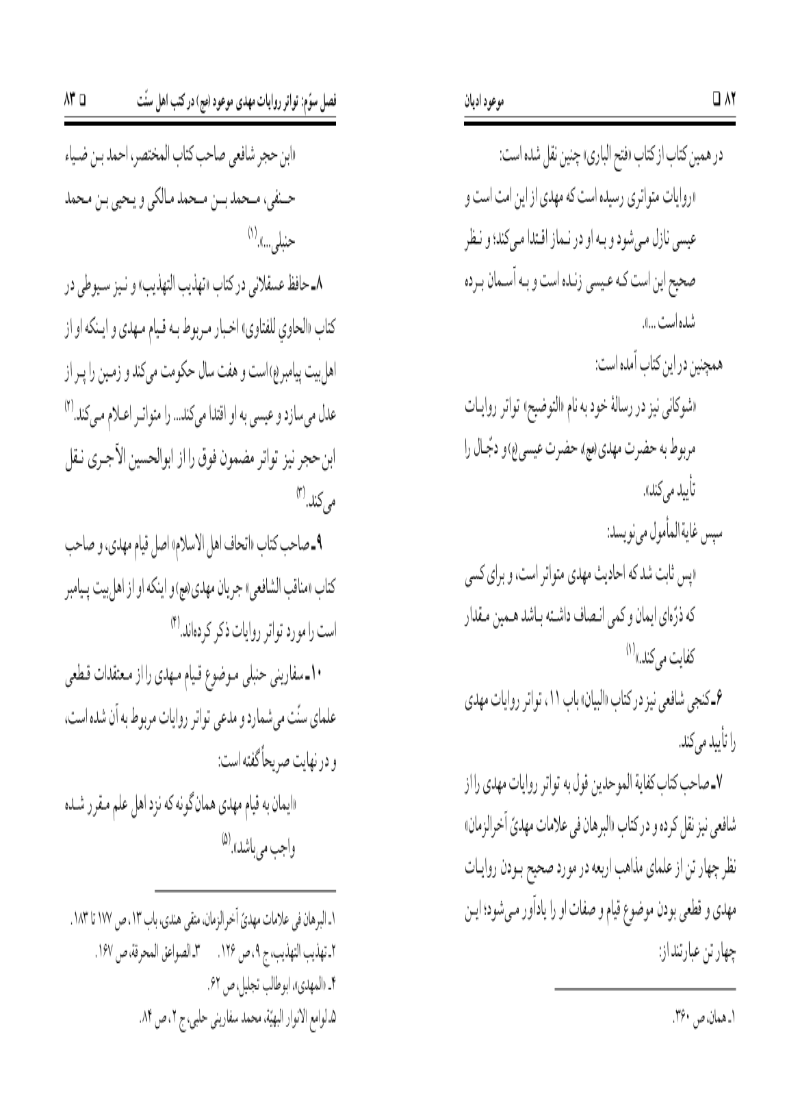 ۸۲ □ موعود ادیان
در همین کتاب از کتاب «فتح الباری» چنین نقل شده است:
«روایات متواتری رسیده است که مهدی از این امت است و
عیسی نازل می‌شود و به او در نماز اقتدا می‌کند؛ و نظر
صحیح این است که عیسی زنده است و به آسمان برده
شده است ...».
همچنین در این کتاب آمده است:
«شوکانی نیز در رسالهٔ خود به نام «التوضیح» تواتر روایات
مربوط به حضرت مهدی(عج)، حضرت عیسی(ع) و دجّال را
تأیید می‌کند».
سپس غایة المأمول می‌نویسد:
«پس ثابت شد که احادیث مهدی متواتر است، و برای کسی
که ذرّه‌ای ایمان و کمی انصاف داشته باشد همین مقدار
کفایت می‌کند.»(۱)
۶ـ کنجی شافعی نیز در کتاب «البیان» باب ۱۱، تواتر روایات مهدی
را تأیید می‌کند.
۷ـ صاحب کتاب کفایة الموحدین قول به تواتر روایات مهدی را از
شافعی نیز نقل کرده و در کتاب «البرهان فی علامات مهدیّ آخرالزمان»
نظر چهار تن از علمای مذاهب اربعه در مورد صحیح بودن روایات
مهدی و قطعی بودن موضوع قیام و صفات او را یادآور می‌شود؛ این
چهار تن عبارتند از:
۱ـ همان، ص ۳۶۰.
فصل سوّم: تواتر روایات مهدی موعود (عج) در کتب اهل سنّت □ ۸۳
«ابن حجر شافعی صاحب کتاب المختصر، احمد بن ضیاء
حنفی، محمد بن محمد مالکی و یحیی بن محمد
حنبلی...».(۱)
۸ـ حافظ عسقلانی در کتاب «تهذیب التهذیب» و نیز سیوطی در
کتاب «الحاوي للفتاوی» اخبار مربوط به قیام مهدی و اینکه او از
اهل‌بیت پیامبر(ع) است و هفت سال حکومت می‌کند و زمین را پر از
عدل می‌سازد و عیسی به او اقتدا می‌کند... را متواتر اعلام می‌کند.(۲)
ابن حجر نیز تواتر مضمون فوق را از ابوالحسین الآجری نقل
می‌کند.(۳)
۹ـ صاحب کتاب «اتحاف اهل الاسلام» اصل قیام مهدی، و صاحب
کتاب «مناقب الشافعی» جریان مهدی(عج) و اینکه او از اهل‌بیت پیامبر
است را مورد تواتر روایات ذکر کرده‌اند.(۴)
۱۰ـ سفارینی حنبلی موضوع قیام مهدی را از معتقدات قطعی
علمای سنّت می‌شمارد و مدعی تواتر روایات مربوط به آن شده است،
و در نهایت صریحاً گفته است:
«ایمان به قیام مهدی همان‌گونه که نزد اهل علم مقرر شده
واجب می‌باشد».(۵)
۱ـ البرهان فی علامات مهدیّ آخرالزمان، متقی هندی، باب ۱۳، ص ۱۷۷ تا ۱۸۳.
۲ـ تهذیب التهذیب، ج ۹، ص ۱۲۶. ۳ـ الصواعق المحرقة، ص ۱۶۷.
۴ـ «المهدی»، ابوطالب تجلیل، ص ۶۲.
۵ـ لوامع الانوار البهیّة، محمد سفارینی حلبی، ج ۲، ص ۸۴.